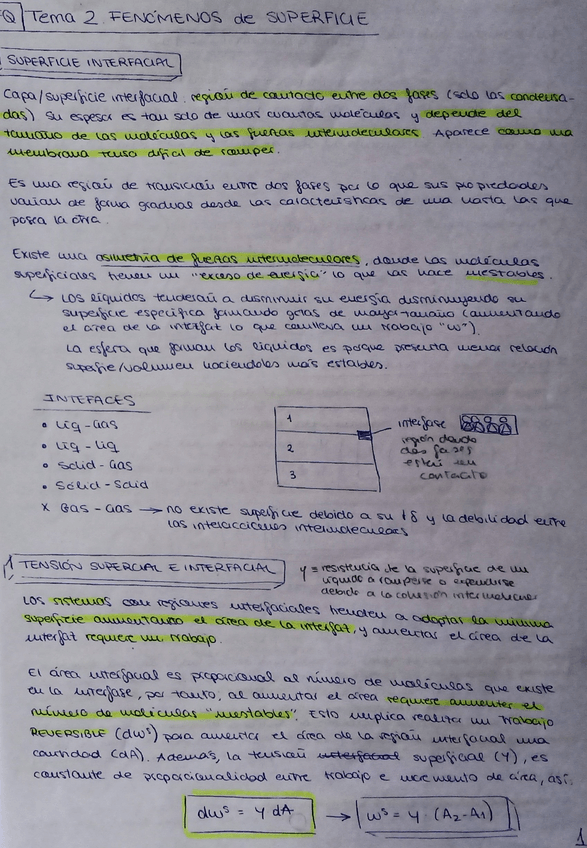 FQ Tema 2. FENÓMENOS de SUPERFICIE
SUPERFICIE INTERFACIAL
Capa/superficie interfacial. región de contacto entre dos fases (solo las condensa-
das) Su espesor es tan solo de unas cuantas moléculas y depende del
tamaño de las moléculas y las fuerzas intermoleculares. Aparece como una
membrana tensa difícil de romper.
Es una región de transición entre dos fases por lo que sus propiedades
varían de forma gradual desde las características de una hasta las que
posea la otra.
Existe una asimetría de fuerzas intermoleculares, donde las moléculas
superficiales tienen un "exceso de energía" lo que las hace inestables.
↳ Los líquidos tenderán a disminuir su energía disminuyendo su
superficie específica formando gotas de mayor tamaño (aumentando
el área de la interfat lo que conlleva un trabajo "w").
La esfera que forman los líquidos es porque presenta menor relación
superfie/volumen haciendolos más estables.
INTEFACES
• Liq - Gas
• Liq - Liq
• Solid - Gas
• Solid - Solid
x Gas - Gas → no existe superficie debido a su ↑δ y la debilidad entre
las interacciones intermoleculares
1
2
3
interfase
región donde
dos fases
están en
contacto
1 TENSIÓN SUPERCIAL E INTERFACIAL
γ = resistencia de la superficie de un
líquido a romperse o expandirse
debido a la cohesión intermolecular
Los sistemas con regiones interfaciales tienden a adoptar la mínima
superficie aumentando el área de la interfat, y aumentar el área de la
interfat requiere un trabajo.
El área interfacial es proporcional al número de moléculas que existe
en la interfase, por tanto, al aumentar el área requiere aumentar el
número de moléculas "inestables". Esto implica realizar un trabajo
REVERSIBLE (dwˢ) para aumentar el área de la región interfacial una
cantidad (dA). Además, la tensión interfacial superficial (γ), es
constante de proporcionalidad entre trabajo e incremento de área, así:
dwˢ = γ dA → wˢ = γ · (A₂-A₁)
1